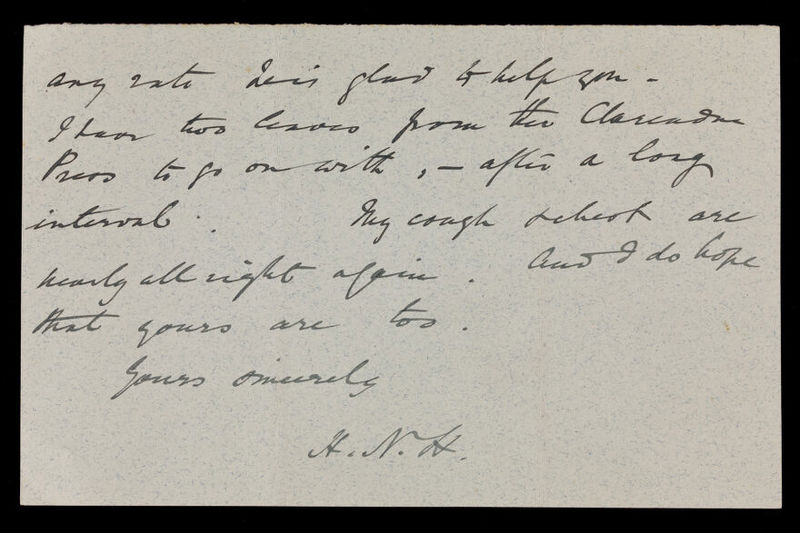 any rate he is glad to help you –
I have two leaves from the Clarendon
Press to go on with, – after a long
interval. My cough & chest are
nearly all right again. And I do hope
that yours are too.
Yours sincerely
H. N. H.